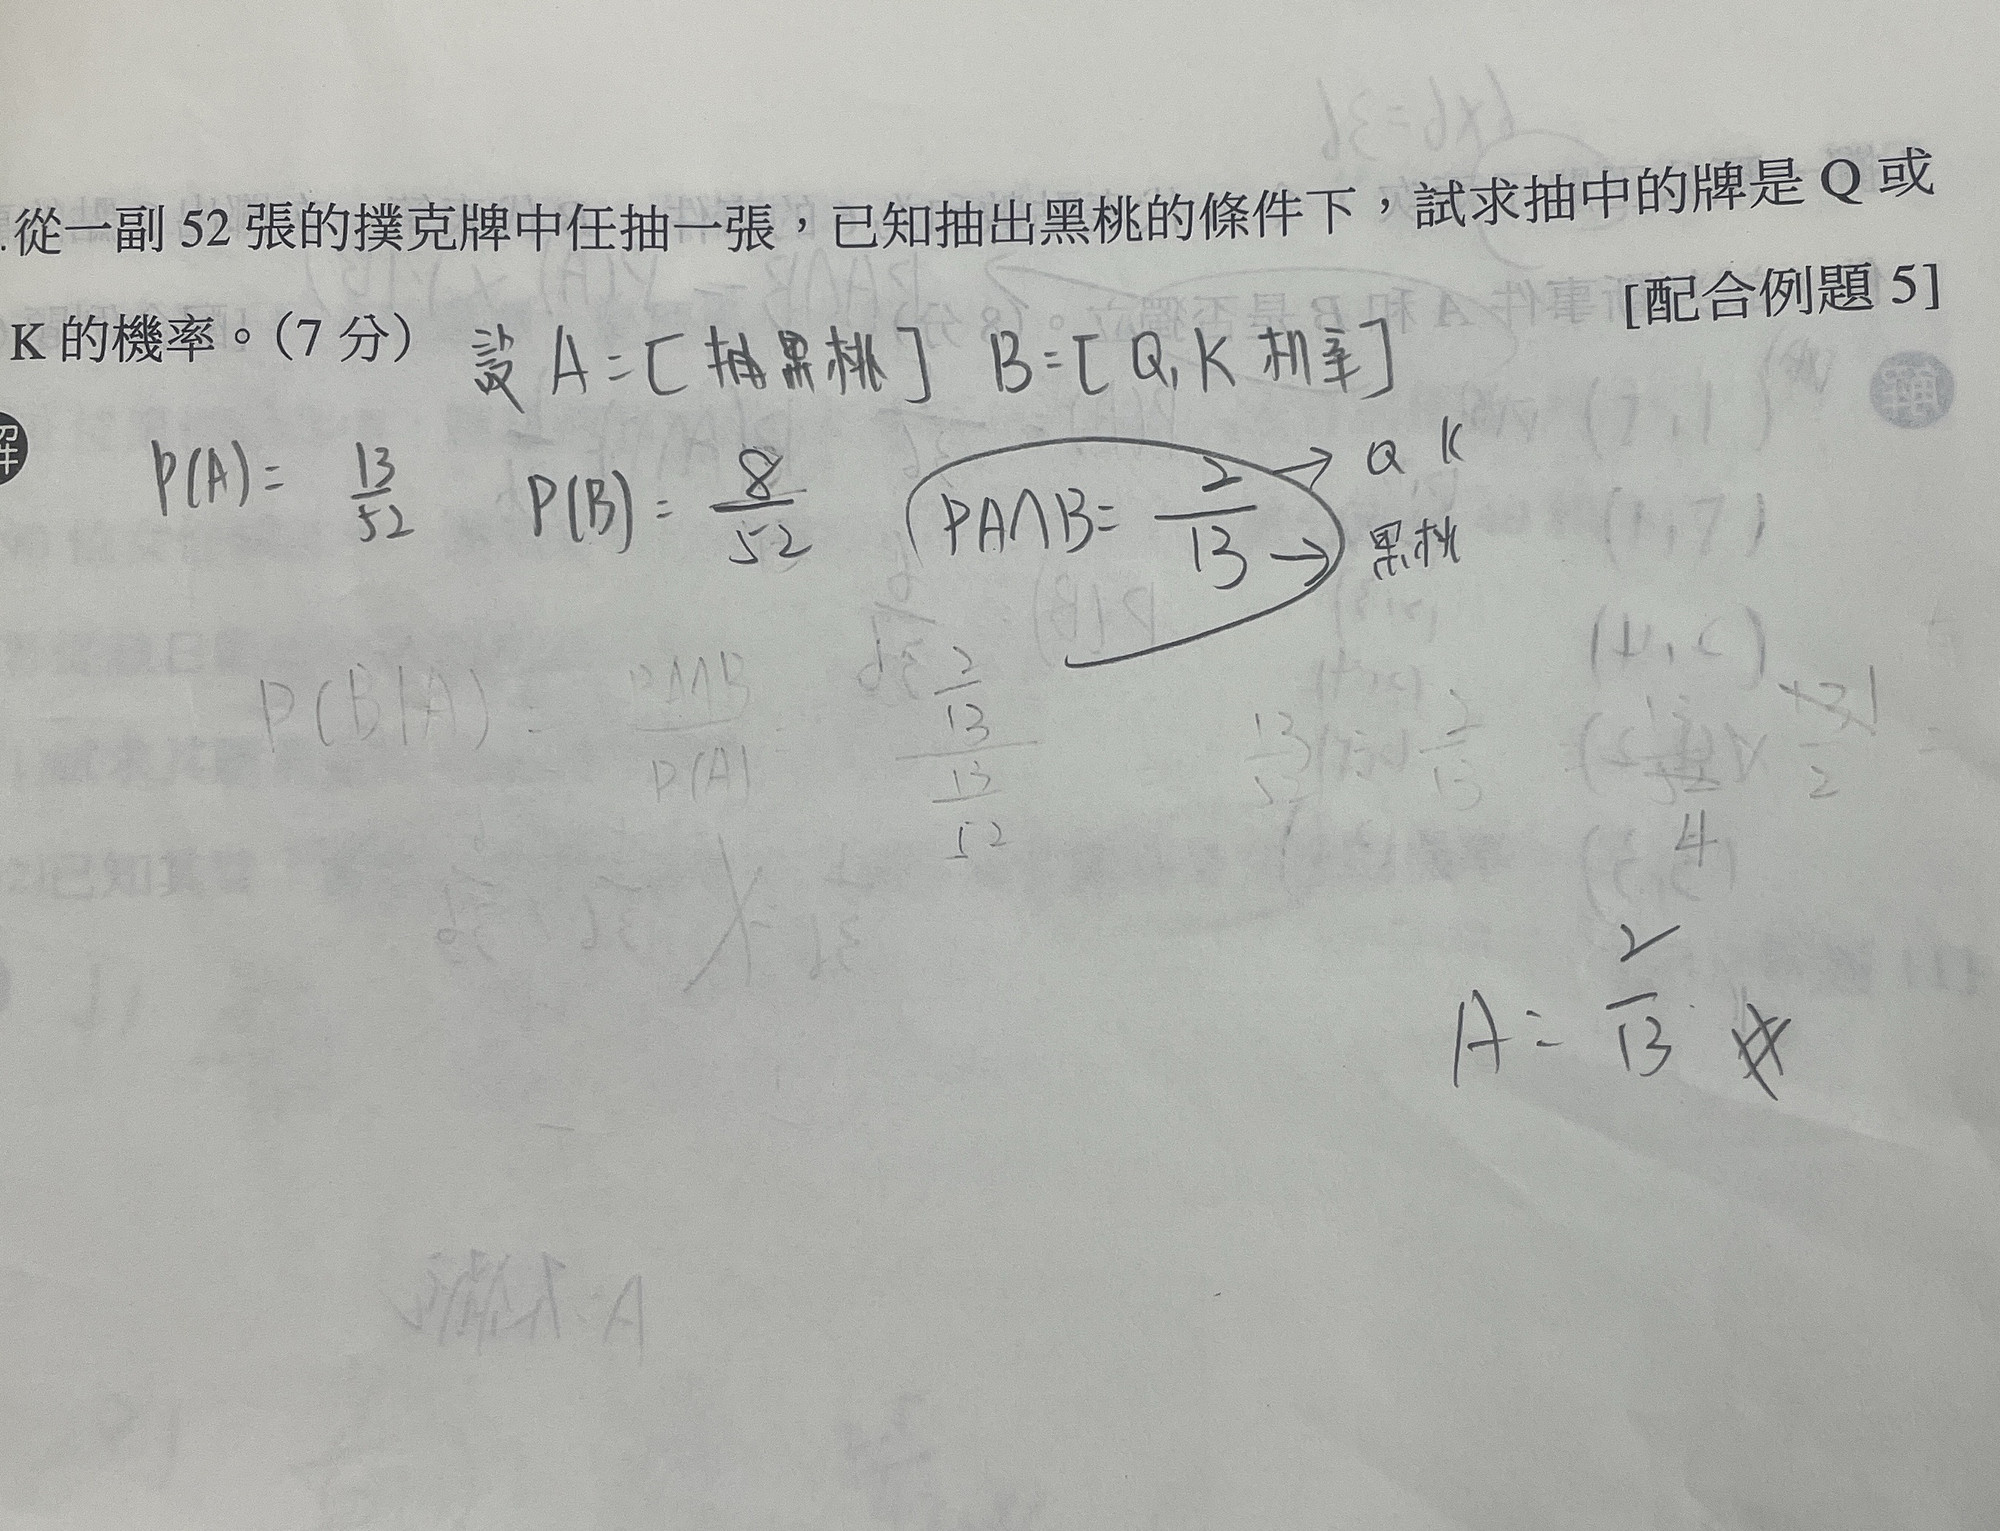 .從一副 52 張的撲克牌中任抽一張，已知抽出黑桃的條件下，試求抽中的牌是 Q 或
K 的機率。（7 分） [配合例題 5]
設 A = [ 抽黑桃 ] B = [ Q, K 机率 ]
解
P(A) = 13/52 P(B) = 8/52 PA∩B = 2/13 → Q K
→ 黑桃
P(B|A) = PA∩B / P(A) = 2/13 / 13/52 13/52 2/13
4
A = 2/13 #